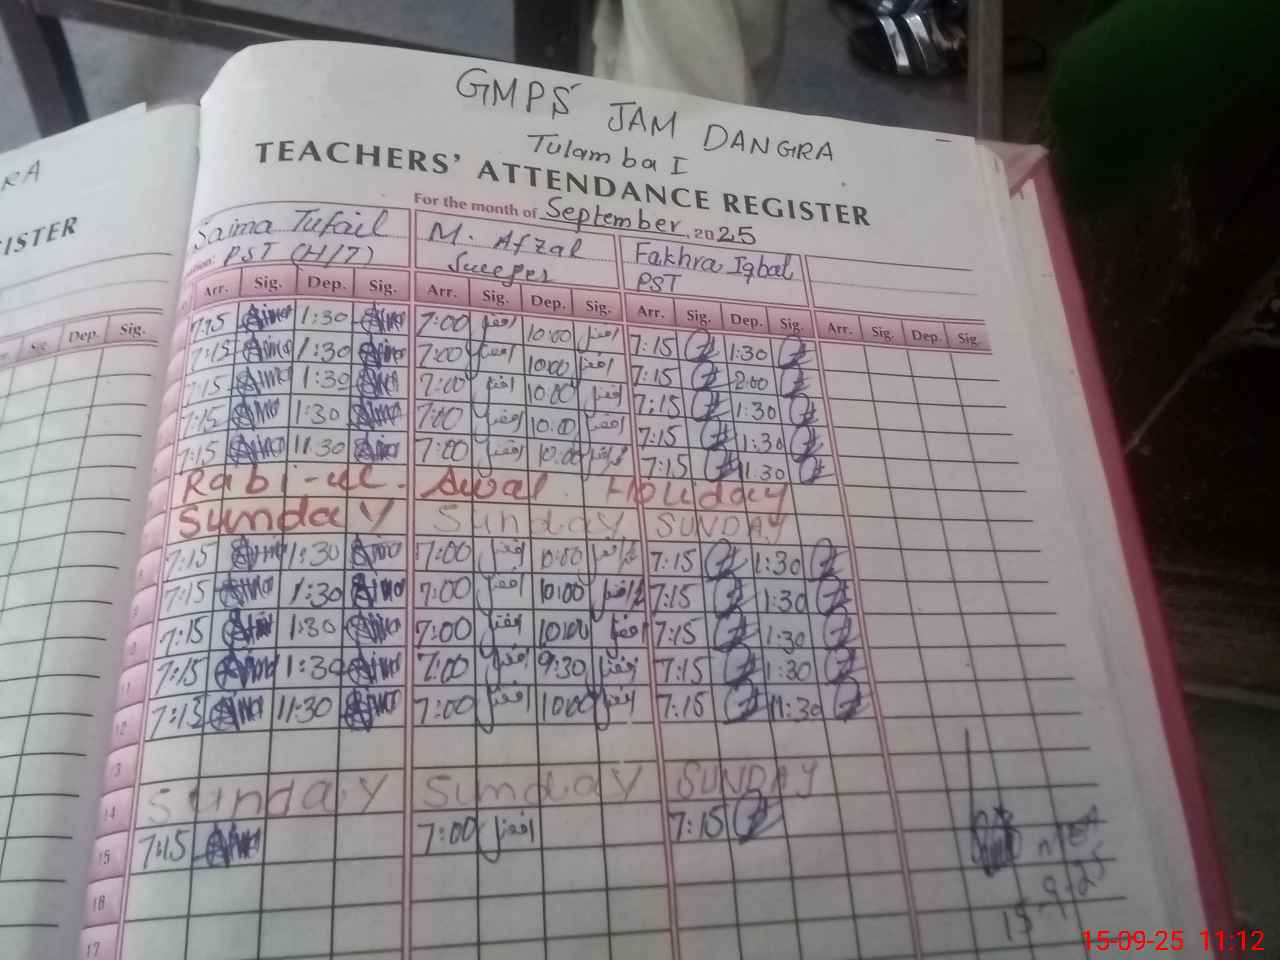 GMPS JAM DANGRA
Tulamba I
TEACHERS' ATTENDANCE REGISTER
For the month of September, 2025
RA
ISTER
Saima Tufail M. Afzal Fakhra Iqbal
PST (H/T) Sweeper PST
Dep. Sig. Arr. Sig. Dep. Sig. Arr. Sig. Dep. Sig. Arr. Sig. Dep. Sig. Arr. Sig. Dep. Sig.
7:15 1:30 7:00 افضل 10:00 افضل 7:15 1:30
7:15 1:30 7:00 افضل 10:00 افضل 7:15 2:00
7:15 1:30 7:00 افضل 10:00 افضل 7:15 1:30
7:15 1:30 7:00 افضل 10:00 افضل 7:15 1:30
7:15 11:30 7:00 افضل 10:00 افضل 7:15 11:30
Rabi-ul-Awal Holiday
Sunday Sunday SUNDAY
7:15 1:30 7:00 افضل 10:00 افضل 7:15 1:30
7:15 1:30 7:00 افضل 10:00 افضل 7:15 1:30
7:15 1:30 7:00 افضل 10:00 افضل 7:15 1:30
11 7:15 1:30 7:00 افضل 9:30 افضل 7:15 1:30
12 7:15 11:30 7:00 افضل 10:00 افضل 7:15 11:30
13
14 Sunday Sunday SUNDAY
15 7:15 7:00 افضل 7:15
16
17
15-9-25
15-09-25 11:12